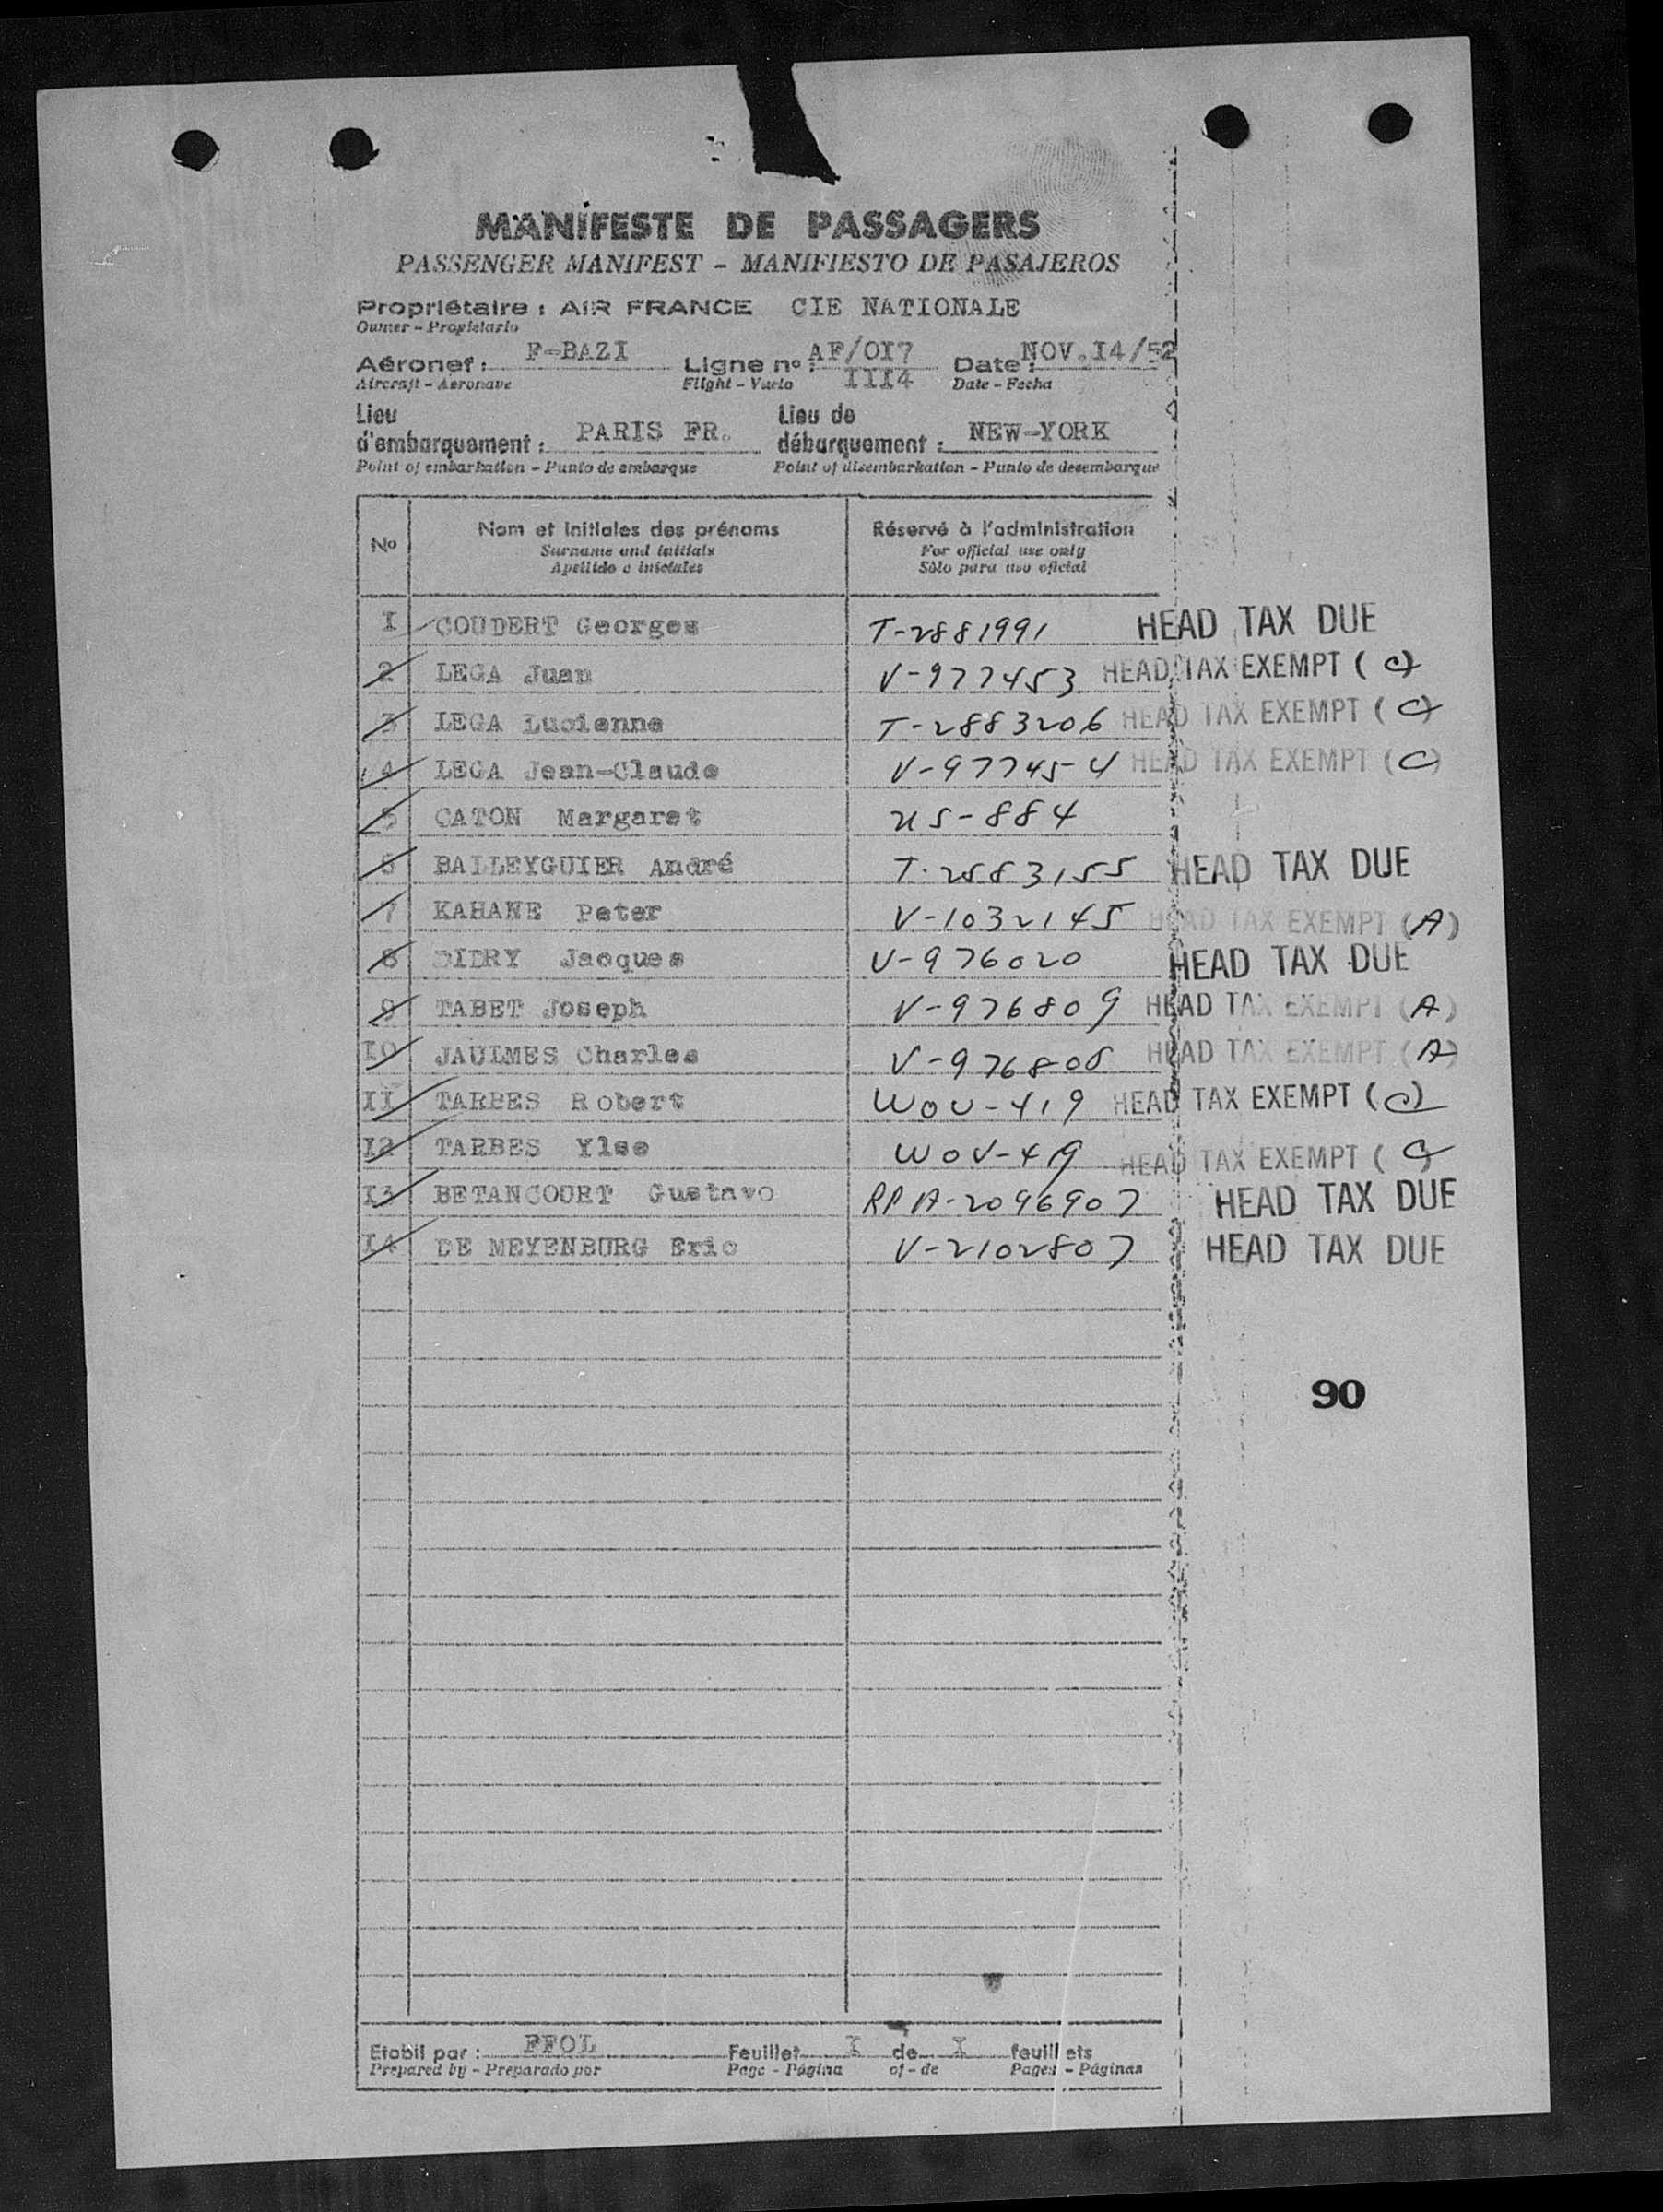 MANIFESTE DE PASSAGERS
PASSENGER MANIFEST - MANIFIESTO DE PASAJEROS
Propriétaire : AIR FRANCE CIE NATIONALE
Owner - Propietario
Aéronef : F-BAZI Ligne nº : AF/OI7 III4 Date : NOV.I4/52
Aircraft - Aeronave Flight - Vuelo Date - Fecha
Lieu d'embarquement : PARIS FR. Lieu de débarquement : NEW-YORK
Point of embarkation - Punto de embarque Point of disembarkation - Punto de desembarque
No Nom et initiales des prénoms Réservé à l'administration
Surname and initials For official use only
Apellido e iniciales Sólo para uso oficial
I COUDERT Georges T-2881991 HEAD TAX DUE
2 LEGA Juan V-977453 HEAD TAX EXEMPT (C)
3 LEGA Lucienne T-2883206 HEAD TAX EXEMPT (C)
4 LEGA Jean-Claude V-977454 HEAD TAX EXEMPT (C)
5 CATON Margaret US-884
6 BALLEYGUIER André T-2883155 HEAD TAX DUE
7 KAHANE Peter V-1032145 HEAD TAX EXEMPT (A)
8 DIDRY Jacques V-976020 HEAD TAX DUE
9 TABET Joseph V-976809 HEAD TAX EXEMPT (A)
IO JAULMES Charles HEAD TAX EXEMPT (A)
II TARBES Robert WOV-419 HEAD TAX EXEMPT (C)
I2 TARBES Ylse WOV-419 HEAD TAX EXEMPT (C)
I3 BETANCOURT Gustavo RPA-2096907 HEAD TAX DUE
I4 DE MEYENBURG Eric V-2102807 HEAD TAX DUE
90
Etabli par : FFOL Feuillet I de I feuillets
Prepared by - Preparado por Page - Página of - de Pages - Páginas